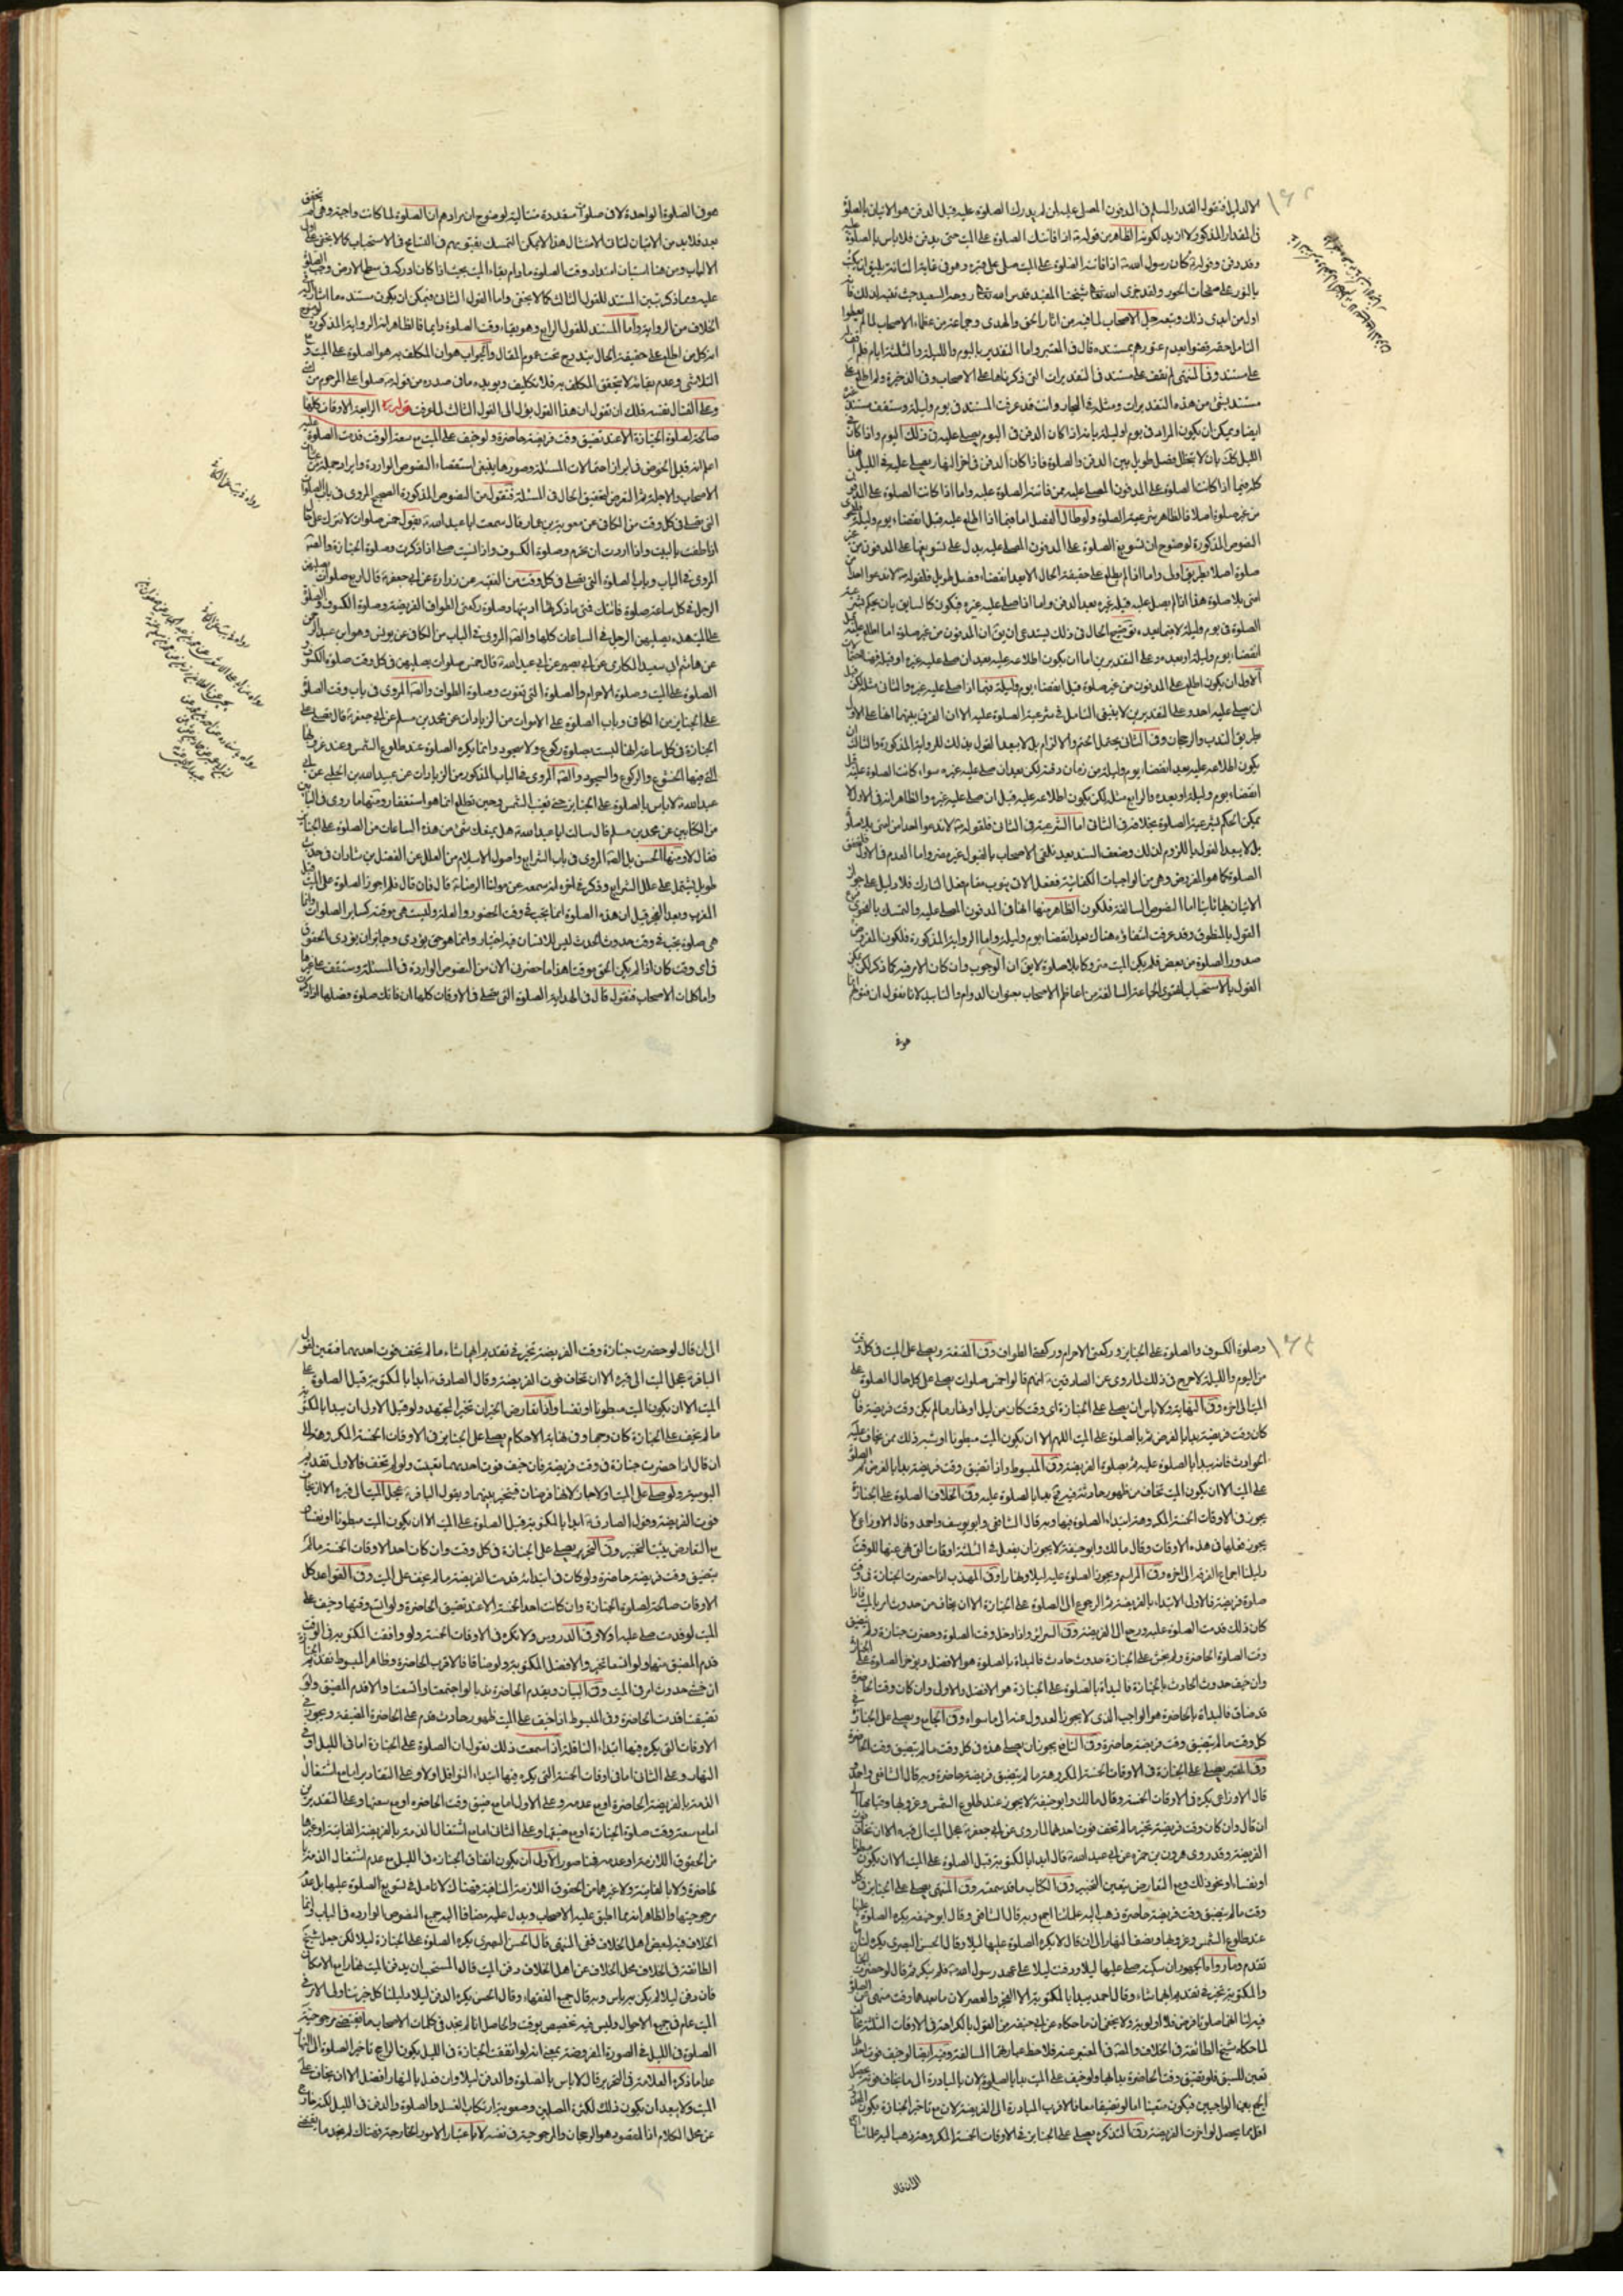 الا لدليل فنقول القدر المسلم فى المدفون المصلى عليه لمن لم يدرك الصلوة عليه قبل الدفن هو الاتيان بالصلوة
فى المقدار المذكور لا ازيد لكونه الظاهر من قوله ع اذا فاتتك الصلوة على الميت حتى يدفن فلا باس بالصلوة عليه
وقد دفن وقوله ع كان رسول الله ص اذا فاتته الصلوة على الميت صلى على قبره وهو فى غاية المتانة يليق ان يكتب
بالنور على صفحات الحور ولقد جرى الله تعالى شيخنا المفيد قدس الله تعالى روحه السعيد حيث
اول من ابدى ذلك وتبعه جل الاصحاب لما فيه من اثار الحق والهدى وجماعة من عظماء الاصحاب لما لم
التامل حقه قضوا بعدم عثورهم بمستنده قال فى المعتبر واما التقدير باليوم والليلة والثلثة ايام فلم نقف له
على مستند وفى المنتهى لم نقف على مستند فى التقديرات التى ذكرناها على الاصحاب وفى الذخيرة ولم اطلع على
مستند بشئ من هذه التقديرات ومثله فى البحار وانت قد عرفت المستند فى يوم وليلة وستقف
ايضا ويمكن ان يكون المراد فى يوم او ليلة بانه اذا كان الدفن فى اليوم يصلى عليه فى ذلك اليوم واذا كان فى
الليل كك بان لا يتخلل فصل طويل بين الدفن والصلوة فاذا كان الدفن فى اخر النهار يصلى عليه فى الليل هذا
كله فيما اذا كانت الصلوة على المدفون المصلى عليه ممن فاتته الصلوة عليه واما اذا كانت الصلوة على المدفون
من غير صلوة اصلا فالظاهر شرعية الصلوة ولو طال الفصل اما فيما اذا اطلع عليه قبل انقضاء يوم وليلة
النصوص المذكورة لوضوح ان تسويغ الصلوة على المدفون المصلى عليه يدل على تسويغها على المدفون من غير
صلوة اصلا بطريق اولى واما اذا لم يطلع على حقيقة الحال الا بعد انقضاء وفصل طويل فلقوله ع لا تدعوا احدا من
امتى بلا صلوة هذا اذا لم يصل عليه قبله غيره بعد الدفن واما اذا صلى عليه غيره فيكون كالسابق بان يحكم بشرعية
الصلوة فى يوم وليلة لا فيما بعده توضيح الحال فى ذلك يستدعى ان يق ان المدفون من غير صلوة اما اطلع عليه قبل
انقضاء يوم وليلة او بعده وعلى التقديرين اما ان يكون اطلاعه عليه بعد ان صلى عليه غيره او قبله
الاول ان يكون اطلع على المدفون من غير صلوة قبل انقضاء يوم وليلة فيما اذا صلى عليه غيره والثانى مثله لكن قبل
ان يصلى عليه احد وعلى التقديرين لا ينبغى التامل فى شرعية الصلوة عليه الا ان الفرق بينهما انها على الاول
طريق الندب والرجحان وفى الثانى يحتمل الحتم والالزام بل لا يبعد القول بذلك للرواية المذكورة والثالث ان
يكون اطلاعه عليه بعد انقضاء يوم وليلة من زمان دفنه لكن بعد ان صلى عليه غيره سواء كانت الصلوة عليه قبل
انقضاء يوم وليلة او بعده والرابع مثله لكن يكون اطلاعه عليه قبل ان صلى عليه غيره والظاهر انه فى الاول لا
يمكن الحكم بشرعية الصلوة بخلافه فى الثانى اما الشرعية فى الثانى فلقوله ع لا تدعوا احدا من امتى بلا صلوة
بل لا يبعد القول باللزوم لذلك وضعف السند بعد تلقى الاصحاب بالقبول غير مضر واما العدم فى الاول
الصلوة كما هو المفروض وهى من الواجبات الكفائية ففعل الاخر ينوب مناب فعل التارك فلا دليل على جواز
الاتيان بها ثانيا اما النصوص السالفة فلكون الظاهر منها انها فى المدفون المصلى عليه والتمسك بالفحوى فرع
القول بالمنطوق وقد عرفت انتفاؤه هناك بعد انقضاء يوم وليلة واما الرواية المذكورة فلكون المفروض
صدور الصلوة من بعض فلم يكن الميت متروكا بلا صلوة لايق ان الوجوب وان كان الامر فيه كما ذكر لكن يمكن
القول بالاستحباب لفتوى الجماعة السالفة من اعاظم الاصحاب بعنوان الدوام والتابيد لانا نقول ان فتواهم انما
هو فى
هو فى الصلوة الواحدة لا فى صلوات متعددة متتالية لوضوح ان مرادهم ان الصلوة لما كانت واجبة وهى لم يتحقق
بعد فلا بد من الاتيان لذلك الامتثال هذا لا يمكن التمسك بفتويهم فى التسامح فى الاستحباب كما لا يخفى على اولى
الالباب ومن هنا استبان امتداد وقت الصلوة ما دام بقاء الميت بحيث اذا كان ادركه فى سطح الارض وجب الصلوة
عليه ومما ذكر تبين المستند للقول الثالث كما لا يخفى واما القول الثانى فيمكن ان يكون مستنده ما اشار اليه فى
الخلاف من الرواية واما المستند للقول الرابع وهو بقاء وقت الصلوة دائما فالظاهر انه الرواية المذكورة لوضوح
انه كل من اطلع على حقيقة الحال يندرج تحت عموم المقال والجواب هو ان المكلف به هو الصلوة على الميت ومع
التلاشى وعدم بقائه لا يتحقق المكلف به فلا تكليف ويؤيده ما فى صدره من قوله ص صلوا على المرجوم من امتى
وعلى القتال نفسه فلك ان تقول ان هذا القول يؤل الى القول الثالث لما وقت قوله ره الرابعة الاوقات كلها
صالحة لصلوة الجنازة الا عند تضيق وقت فريضة حاضرة ولو خيف على الميت مع سعة الوقت قدمت الصلوة عليه
اعلم انه قبل الخوض فى ابراز احتمالات المسئلة وصورها ينبغى استقصاء النصوص الواردة وايراد جملة من عبائر
الاصحاب والاجلة ثم التعرض لتحقيق الحال فى المسئلة فنقول من النصوص المذكورة الصحيح المروى فى باب الصلوات
التى تصلى فى كل وقت من الكافى عن معوية بن عمار قال سمعت ابا عبد الله ع يقول خمس صلوات لا تترك على حال
اذا طفت بالبيت واذا اردت ان تحرم وصلوة الكسوف واذا نسيت فصل اذا ذكرت وصلوة الجنازة والصحيح
المروى فى الباب وباب الصلوة التى تصلى فى كل وقت من الفقيه عن زرارة عن ابى جعفر ع قال اربع صلوات يصليهن
الرجل فى كل ساعة صلوة فاتتك فمتى ما ذكرتها اديتها وصلوة ركعتى الطواف الفريضة وصلوة الكسوف والصلوة
على الميت هذه يصليهن الرجل فى الساعات كلها والصحيح المروى فى الباب من الكافى عن يونس وهو ابن عبد الرحمن
عن هاشم ابى سعيد المكارى عن ابى بصير عن ابى عبد الله ع قال خمس صلوات يصليهن فى كل وقت صلوة الكسوف و
الصلوة على الميت وصلوة الاحرام والصلوة التى تفوت وصلوة الطواف والصحيح المروى فى باب وقت الصلوة
على الجنايز من الكافى وباب الصلوة على الاموات من الزيادات عن محمد بن مسلم عن ابى جعفر ع قال تصلى على
الجنازة فى كل ساعة انها ليست بصلوة ركوع ولا سجود وانما يكره الصلوة عند طلوع الشمس وعند غروبها
التى فيها الخشوع والركوع والسجود والصحيح المروى فى الباب المذكور من الزيادات عن عبيد الله بن الحلبى عن ابى
عبد الله ع لا باس بالصلوة على الجنايز حين تغيب الشمس وحين تطلع انما هو استغفار ومنها ما روى فى البابين
من الكتابين عن محمد بن مسلم قال سالت ابا عبد الله ع هل يمنعك شئ من هذه الساعات من الصلوة على الجنايز
فقال لا ومنها الحسن بل الصحيح المروى فى باب الشرايع واصول الاسلام من العلل عن الفضل بن شاذان فى حديث
طويل يشتمل على علل الشرايع وذكر فى اخره انه سمعه عن مولانا الرضا ع قال فان قال فلم اجوز الصلوة على الميت قبل
المغرب وبعد الفجر قيل ان هذه الصلوة انما تجب فى وقت الحضور والعلة وليست هى موقتة كساير الصلوات وانما
هى صلوة تجب فى وقت حدوث الحدث ليس للانسان فيه اختيار وانما هو حق يؤدى وجايز ان يؤدى الحقوق فى
اى وقت كان اذا لم يكن الحق موقتا هذا ما حضرنى الان من النصوص الواردة فى المسئلة وستقف على غيرها
واما كلمات الاصحاب فنقول قال فى الهداية الصلوة التى تصلى فى الاوقات كلها ان فاتك صلوة فصلها اذا ذكرت
وصلوة الكسوف والصلوة على الجنايز وركعتى الاحرام وركعتى الطواف وفى المقنعة ويصلى على الميت فى كل وقت
من اليوم والليلة لا حرج فى ذلك لما روى عن الصادقين ع انهم قالوا خمس صلوات يصلى على كل حال الصلوة على
الميت الى اخره وفى النهاية ولا باس ان يصلى على الجنازة اى وقت كان من ليل او نهار ما لم يكن وقت فريضة فان
كان وقت فريضة بدا بالفرض ثم بالصلوة على الميت اللهم الا ان يكون الميت مبطونا او شبه ذلك ممن يخاف عليه
الحوادث فانه يبدا بالصلوة عليه ثم بصلوة الفريضة وفى المبسوط واذا تضيق وقت فريضة بدا بالفرض ثم الصلوة
على الميت الا ان يكون الميت يخاف من ظهور حادثة فيه فح يبدا بالصلوة عليه وفى الخلاف الصلوة على الجنازة
يجوز فى الاوقات الخمسة المكروهة ابتداء الصلوة فيها وبه قال الشافعى وابو يوسف واحمد وقال الاوزاعى لا
يجوز فعلها فى هذه الاوقات وقال مالك وابو حنيفة لا يجوز ان يفعل فى الثلثة اوقات التى نهى عنها للوقت
دليلنا اجماع الفرقة الى اخره وفى المراسم ويجوز الصلوة عليه ليلا ونهارا وفى المهذب اذا حضرت الجنازة فى وقت
صلوة فريضة فالاولى الابتداء بالفريضة ثم الرجوع الى الصلوة على الجنازة الا ان يخاف من حدوث امر بالميت فاذا
كان ذلك قدمت الصلوة عليه ورجع الى الفريضة وفى السرائر واذا دخل وقت الصلوة وحضرت جنازة ولم يتضيق
وقت الصلوة الحاضرة ولم يخش على الجنازة حدوث حادث فالبداة بالصلوة هو الافضل ويؤخر الصلوة على الجنازة
وان خيف حدوث الحادث بالجنازة فالبداة بالصلوة على الجنازة هو الافضل والاولى وان كان وقت الحاضرة
قد ضاق فالبداة بالحاضرة هو الواجب الذى لا يجوز العدول عنه الى ما سواه وفى الجامع ويصلى على الجنازة فى
كل وقت ما لم يتضيق وقت فريضة حاضرة وفى النافع يجوز ان يصلى هذه فى كل وقت ما لم يتضيق وقت الحاضرة
وفى المعتبر يصلى على الجنازة فى الاوقات الخمسة المكروهة ما لم يتضيق فريضة حاضرة وبه قال الشافعى واحمد
قال الاوزاعى يكره فى الاوقات الخمسة وقال مالك وابو حنيفة لا يجوز عند طلوع الشمس وغروبها وقيامها الى
ان قال وان كان وقت فريضة تخير ما لم تخف فوت احدهما لما روى عن ابى جعفر ع عجل الميت الى قبره الا ان تخاف فوت
الفريضة وقد روى هرون بن حمزه عن ابى عبد الله ع قال ابدا بالمكتوبة قبل الصلوة على الميت الا ان يكون مبطونا
او نفساء او نحو ذلك ومع التعارض يتعين التخيير وفى الكتاب ما قد سمعته وفى المنتهى يصلى على الجنايز فى كل
وقت ما لم يتضيق وقت فريضة حاضرة ذهب اليه علمائنا اجمع وبه قال الشافعى وقال ابو حنيفه يكره الصلوة عليها
عند طلوع الشمس وغروبها ونصف النهار الى ان قال لا يكره الصلوة عليها ليلا وقال الحسن البصرى يكره لنا ما
تقدم وما رواه الجمهور ان سكينة صلى عليها ليلا ودفنت ليلا على عهد رسول الله ص فلم ينكر ثم قال لو حضرت الجنازة
والمكتوبة تخير فى تقديم ايهما شاء وقال احمد يبدا بالمكتوبة الا الفجر والعصر لان ما بعدهما وقت منهى عن الصلوة
فيه لنا انهما صلوتا فرض فلا اولوية ولا يخفى ان ما حكاه عن ابى حنيفه من القول بالكراهة فى الاوقات الثلثة
لما حكاه شيخ الطائفة فى الخلاف والمحقق فى المعتبر عنه فلاحظ عبارتهما السالفة وفيه ايضا لو خيف فوت احدهما
تعين للسبق فلو تضيق وقت الحاضرة بدا بها ولو خيف على الميت بدا بالصلوة لان بالمبادرة الى ما يخاف فوته يحصل
الجمع بين الواجبين فيكون متعينا اما لو تضيقا معا فالاقرب المبادرة الى الفريضة لان مع تاخير الجنازة يكون
اقل مما يحصل لو اخرت الفريضة وفى التذكرة يصلى على الجنايز فى الاوقات الخمسة المكروهة ذهب اليه علمائنا
الى ان قال
الى ان قال لو حضرت جنازة وقت الفريضة تخير فى تقديم ايهما شاء ما لم تخف فوت احدهما فتعين لقول
الباقر ع عجل الميت الى قبره الا ان تخاف فوت الفريضة وقال الصادق ع ابدا بالمكتوبة قبل الصلوة على
الميت الا ان يكون الميت مبطونا او نفساء واذا تعارض الخبران تخير المجتهد ولو قيل الاولى ان يبدا بالمكتوبة
ما لم يخف على الجنازة كان وجها وفى نهاية الاحكام يصلى على الجنايز فى الاوقات الخمسة المكروهة الى
ان قال اذا حضرت جنازة فى وقت فريضة فان خيف فوت احدهما تعينت ولو لم تخف فالاولى تقديم
اليومية ولو صلى على الميت اولا جاز لانهما فرضان فتخير بينهما ويقول الباقر ع عجل الميت الى قبره الا ان تخاف
فوت الفريضة وقول الصادق ع ابدا بالمكتوبة قبل الصلوة على الميت الا ان يكون الميت مبطونا او نفساء
مع التعارض يثبت التخيير وفى التحرير يصلى على الجنازة فى كل وقت وان كان احد الاوقات الخمسة ما لم
يتضيق وقت فريضة حاضرة ولو كان فى ابتدائه قدمت الفريضة ما لم يخف على الميت وفى القواعد كل
الاوقات صالحة لصلوة الجنازة وان كانت احد الخمسة الا عند تضيق الحاضرة ولو اتسع وقتها وخيف على
الميت لو قدمت صلى عليه اولا وفى الدروس ولا تكره فى الاوقات الخمسة ولو وافقت المكتوبة فى الوقت
قدم المضيق منهما ولو اتسعا تخير والافضل المكتوبة ولو ضاقا فالاقرب الحاضرة وظاهر المبسوط تقديم الجنازة
ان خشى حدوث امر فى الميت وفى البيان ويقدم الحاضرة ندبا لو اجتمعتا واتسعتا والا قدم المضيق ولو
تضيقتا قدمت الحاضرة وفى المبسوط اذا خيف على الميت ظهور حادث قدم على الحاضرة المضيقة ويجوز فى
الاوقات التى يكره فيها ابتداء النافلة اذا سمعت ذلك نقول ان الصلوة على الجنازة اما فى الليل او فى
النهار وعلى الثانى اما فى اوقات الخمسة التى يكره فيها ابتداء النوافل او لا وعلى التقادير اما مع اشتغال
الذمة بالفريضة الحاضرة او مع عدمه وعلى الاول اما مع ضيق وقت الحاضره او مع سعتها وعلى التقديرين
اما مع سعة وقت صلوة الجنازة او مع ضيقها وعلى الثانى اما مع اشتغال الذمة بالفريضة الفايتة او غيرها
من الحقوق اللازمة او عدمه فهنا صور الاولى ان يكون اتفاق الجنازة فى الليل مع عدم اشتغال الذمة
بحاضرة ولا بالفايتة ولا غيرهما من الحقوق اللازمة المنافية فهناك لا تامل فى تسويغ الصلوة عليها بل عدم
مرجوحيتها والظاهر انه مما اطبق عليه الاصحاب ويدل عليه مضافا اليه جميع النصوص الوارده فى الباب وانما
الخلاف فيه لبعض اهل الخلاف ففى المنتهى قال الحسن البصرى يكره الصلوة على الجنازة ليلا لكن جعل شيخ
الطائفة فى الخلاف محل الخلاف عن اهل الخلاف دفن الميت قال المستحب ان يدفن الميت نهارا مع الامكان
فان دفن ليلا لم يكن به باس وبه قال جميع الفقهاء وقال الحسن يكره الدفن ليلا دليلنا كل خبر تناول الامر فى دفن
الميت عام فى جميع الاحوال وليس فيه تخصيص بوقت والحاصل انا لم نجد فى كلمات الاصحاب ما يقتضى مرجوحية
الصلوة فى الليل فى الصورة المفروضة بمعنى انه لو اتفقت الجنازة فى الليل يكون الراجح تاخير الصلوة الى النهار
عدا ما ذكره العلامة فى التحرير قال لا باس بالصلوة والدفن ليلا وان فعل بالنهار افضل الا ان يخاف على
الميت ولا يبعد ان يكون ذلك لكثرة المصلين وصعوبة ارتكاب الغسل والصلوة والدفن فى الليل لكنه خارج
عن محل الكلام اذ المقصود هو الرجحان والمرجوحية فى نفسه لا باعتبار الامور الخارجية وهناك لم نجد ما يقتضى